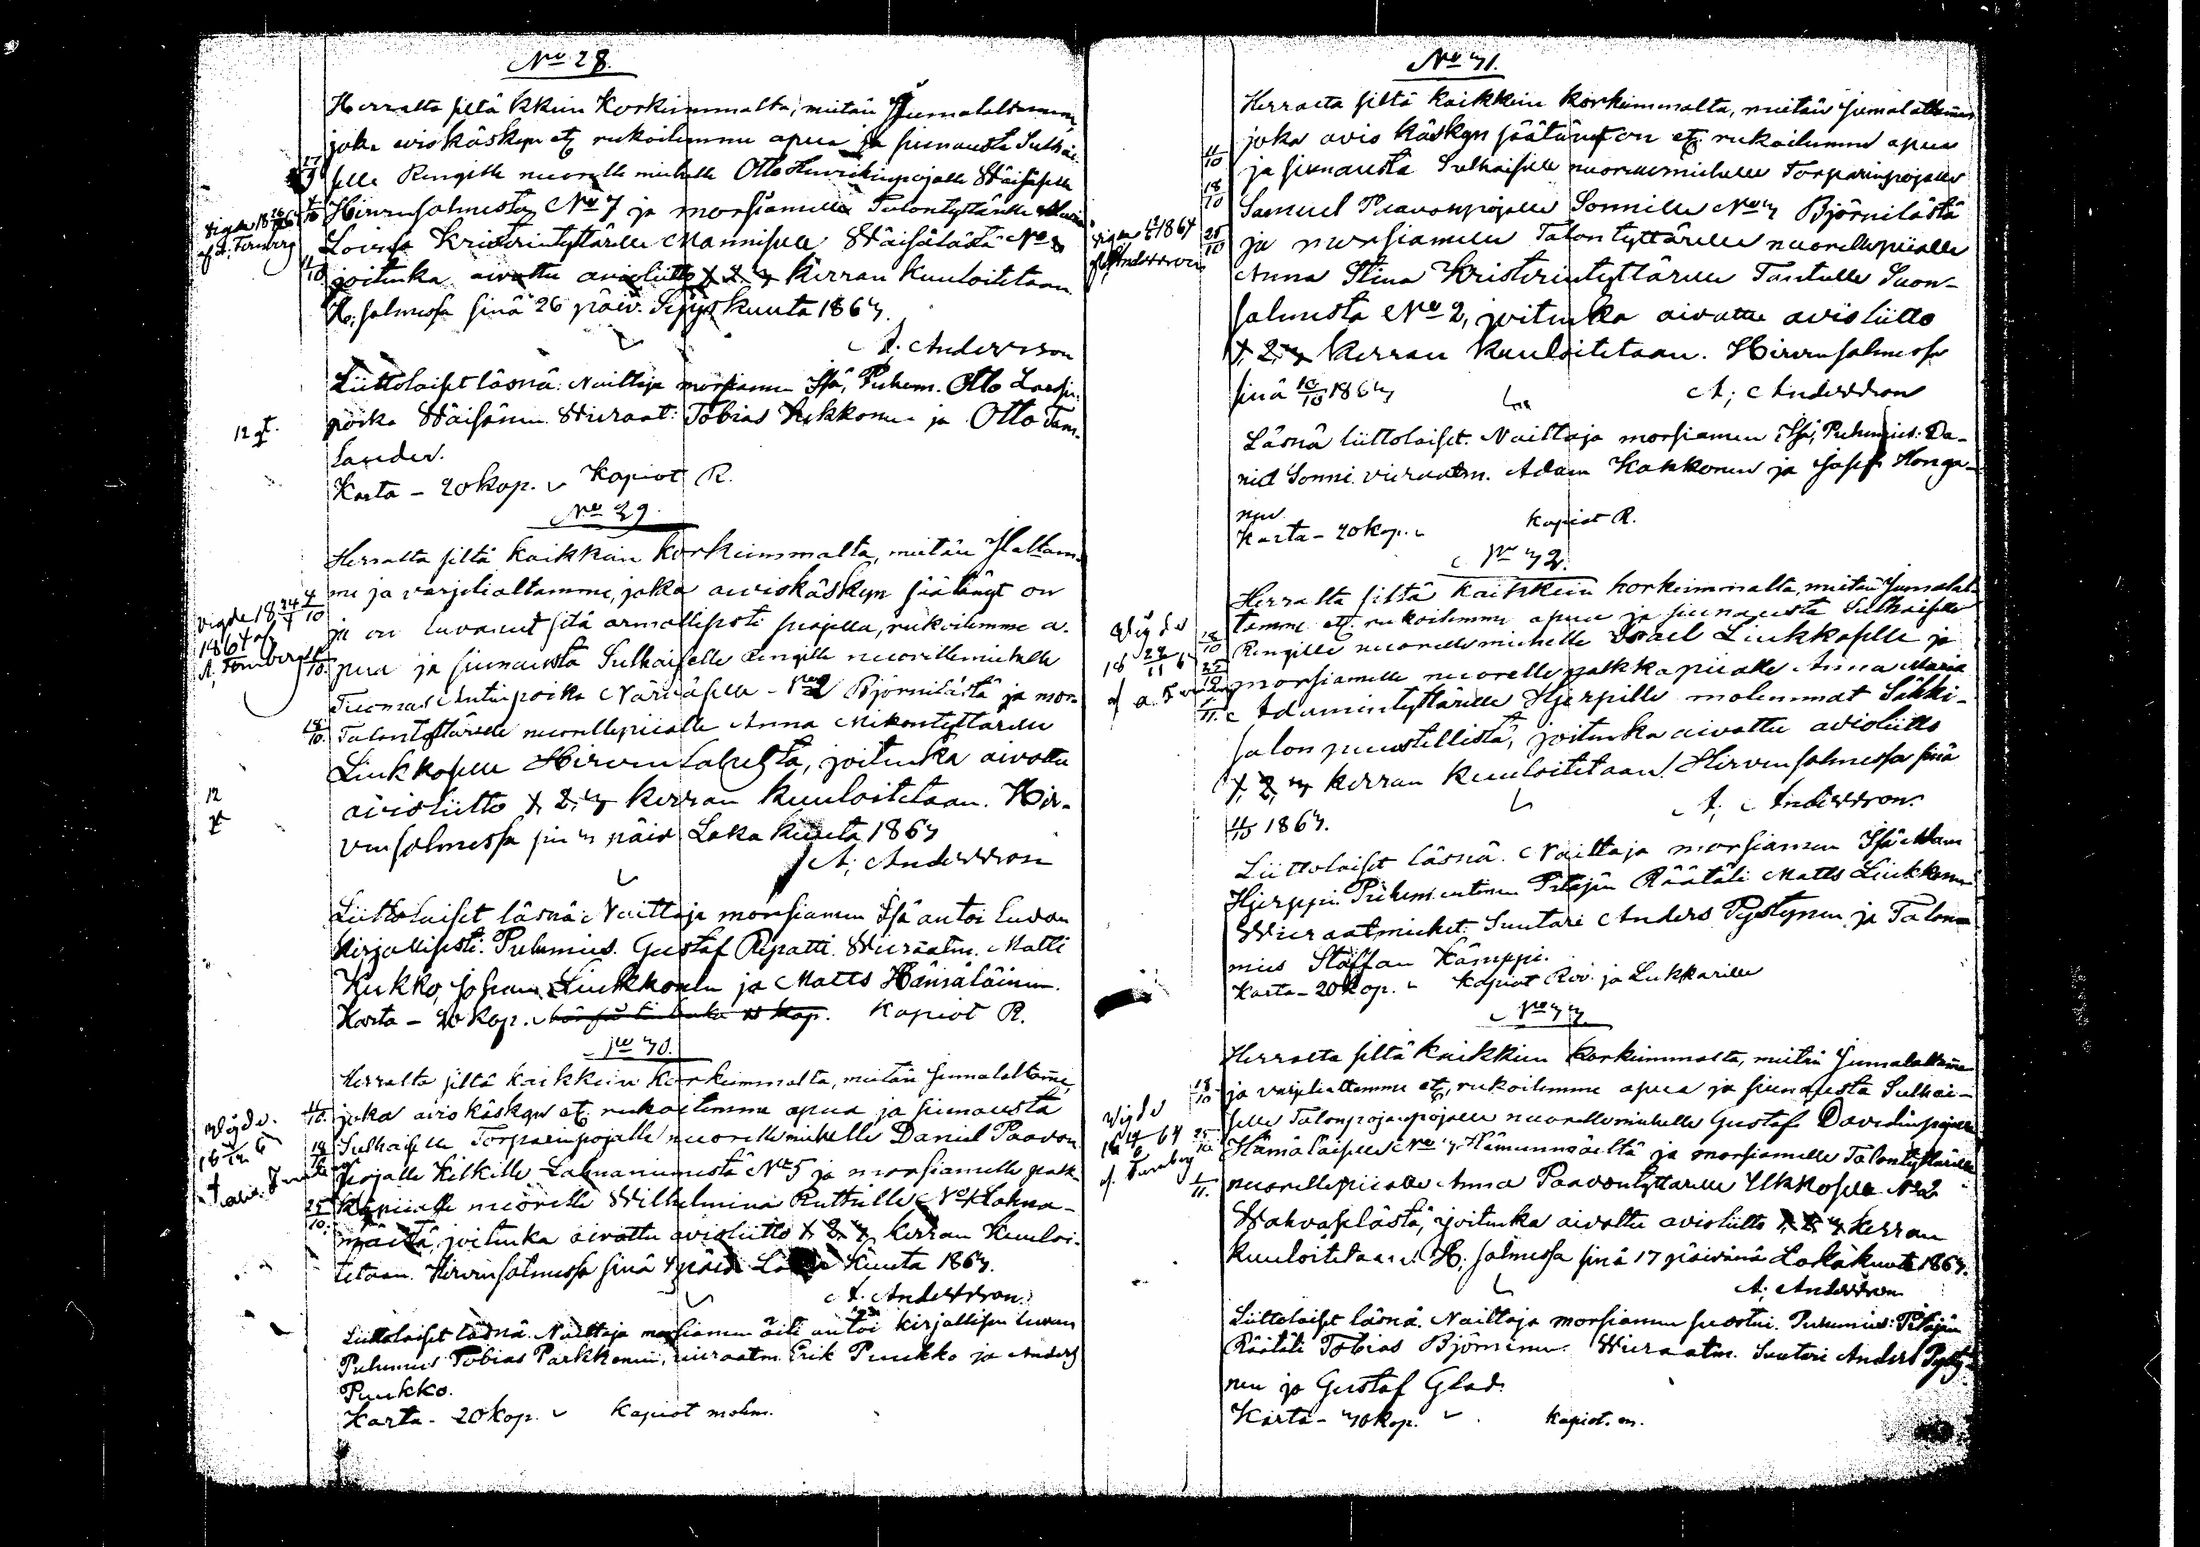 No 28.
Herralta siltä kkein korkeimmalta, meitän Jumalaltamme,
joka aviskäskyn etz rukoilemme apua ja siunausta Sulhai-
27/9 selle Rengille nuorelle miehelle Otto Henrikinpojalle Wäisäselle
4/10 Hirvensalmesta No 7 ja morsiamelle Talontyttärelle Maria
Loviisa Kristerintyttärelle Manniselle Wäisälästä No
11/10 joitenka aivottu avioliitto 1, 2, 3 kerran kuuloitetaan
H. salmessa sinä 26 päiv. Syyskuuta 1863.
A. Andersson
Liittolaiset läsnä: Naittaja morsiamen Isä, Puhem. Otto Lassin-
poika Wäisänen. Wieraat: Tobias Kukkonen ja Otto Tam-
lander.
Karta - 20 kop. Kapiot R.
No 29.
Herralta siltä kaikkein korkeimmalta, meitän
me ja varjeliattamme, jokka aviskäskyn säätänyt on
4/10
ja on luvanut sitä armollisesti suojella, rukoilemme a-
11/10 pua ja siunausta Sulhaiselle Rengille nuorellemiehelle
Tuomas Antinpoika Närväselle - No 2 Björnilästä ja mor-
18/10 Talontyttärelle nuorellepiialle Anna Mikontyttärelle
Liukkoselle Hirvenlahesta, joitenka aivottu
avioliitto 1, 2, 3 kerran kuuloitetaan. Hir-
vensalmessa sin 3 päiv Lokakuuta 1863
A. Andersson
Liittolaiset läsnä: Naittaja morsiamen Isä antoi luvan
kirjallisesti. Puhemies. Gustaf Repatti. Wieraatm. Matti
Kukko, Johan Liukkonen ja Matts Hämäläinen.
Karta - 20 kop. Kapiot R.
No 30.
Herralta siltä kaikkein korkeimmalta, meitän Jumalaltamme,
11/10 joka aviskäskyn etz rukoilemme apua ja siunausta
18/10 Sulhaselle Torparinpojalle nuorellemiehelle Daniel Paavon
pojalle Kilkille Lahnaniemestä No 5 ja morsiamelle palk-
25/10 kapiialle nuorelle Wilhelmina Ruthille No Lahna-
mäeltä, joitenka aivottu avioliitto 1, 2, 3 kerran kuuloi-
tetaan. Hirvensalmessa sinä päiv Lokakuuta 1863.
A. Andersson.
Liittolaiset läsnä. Naittaja morsiamen äiti antoi kirjallisen luvan
Puhemies Tobias Parkkonen, vieraatm. Erik Puukko ja Anders
Puukko.
Karta - 20 kop. Kapiot molem.
Vigde 18 64
af A. Fornberg
12
Vigde 18 24/1
1864 af
A. Fornberg
12
Vigde.
No 31.
Herralta siltä kaikkein korkeimmalta, meitän Jumalaltamme
11/10 joka avis käskyn säätänyt on etz. rukoilemme apua
ja siunausta Sulhaiselle nuorellemiehelle Torparinpojalle
18/10 Samuel Paavonpojalle Sonnille No 3 Björnilästä
25/10 ja morsiamelle Talontyttärelle nuorellepiialle
Anna Stina Kristerintyttärelle Tantulle Suon-
salmesta No 2, joitenka aivottu avioliitto
1, 2, 3 kerran kuuloitetaan. Hirvensalmessa
sinä 10/10 1863
A; Andersson
Läsnä liittolaiset. Naittaja morsiamen Isä, Puhemies: Da-
niel Sonni. vieraatm. Adam Kakkonen ja Josef Honga-
nen.
Karta - 20 kop. Kapiot R.
No 32.
Herralta siltä kaikkein korkeimmalta, meitän Jumalal-
tamme etz. rukoilemme apua ja siunausta Sulhaiselle
18/10 Rengille nuorellemiehelle Israel Liukkoselle ja
25/10 morsiamelle nuorelle palkkapiialle Anna Maria
1/11 Adamintyttärelle Hjerpille molemmat Säkki-
salon puustellista, joitenka aivottu avioliitto
1, 2, 3 kerran kuuloitetaan. Hirvensalmessa sinä
A; Andersson.
11/10 1863.
Liittolaiset läsnä. Naittaja morsiamen Isä Adam
Hjerppi. Puhem. entinen Pitäjän Räätäli Matts Liukkonen
Wieraatmiehet. Suutari Anders Pystynen ja Talon-
mies Staffan Kämppi.
Karta - 20 kop. Kapiot Rov. ja Lukkarille
No 33.
Herralta siltä kaikkein korkeimmalta, meitän Jumalaltamme
18/10 ja varjeliattamme etz, rukoilemme apua ja siunausta Sulhai-
selle Talonpojanpojalle nuorellemiehelle Gustaf Davidinpojalle
25/10 Hämäläiselle No 3 Hämeenmäeltä ja morsiamelle Talontyttärelle
1/11. nuorellepiialle Anna Paavontyttärelle Ukkoselle No 2
Wahvaselästä, joitenka aivottu avioliitto 1, 2, 3 kerran
kuuloitetaan. H; salmessa sinä 17 päivänä Lokakuuta 1863.
A; Andersson
Liittolaiset läsnä. Naittaja morsiamen suostui. Puhemies: Pitäjän
Räätäli Tobias Björninen. Wieraatm. Suutari Anders Pysty-
nen ja Gustaf Glad.
Karta - 30 kop. Kapiot. m.
Vigde 1864
af Andersson
Vigde
18 22/11 6
af A. Fornberg
Vigde
18 64
af Fornberg